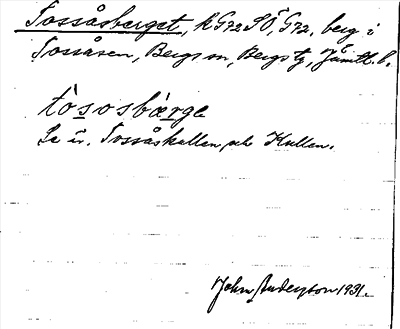 Tossåsberget, kG72SÖ, G72, berg i
Tossåsen, Bergs sn, Bergs tg, Jämtl. l.
tòsosbærge
Se äv. Tossåskallen och Kullen.
John Anderson 1931.